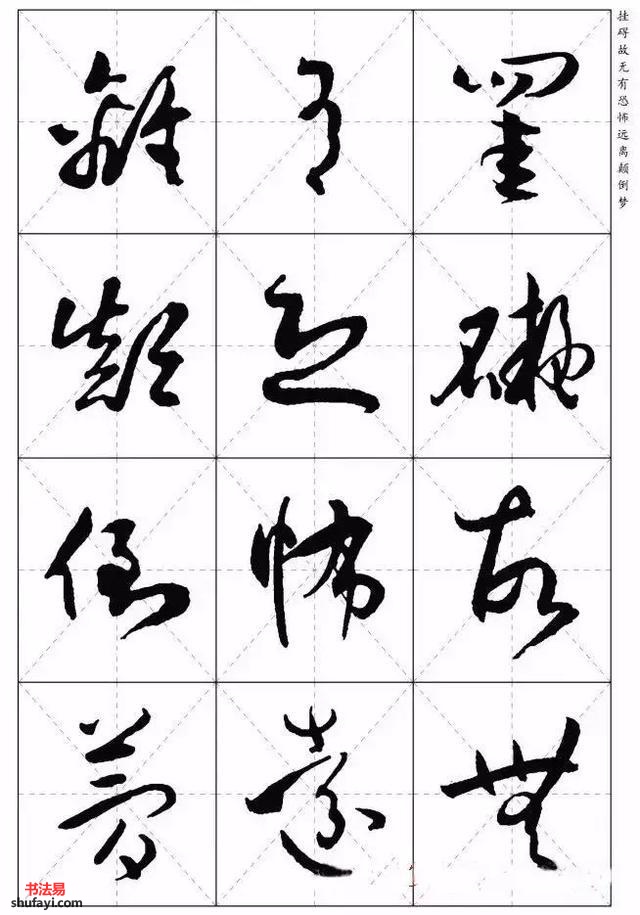 挂碍故无有恐怖远离颠倒梦
罣礙故無
有恐怖遠
離顛倒夢
书法易
shufayi.com